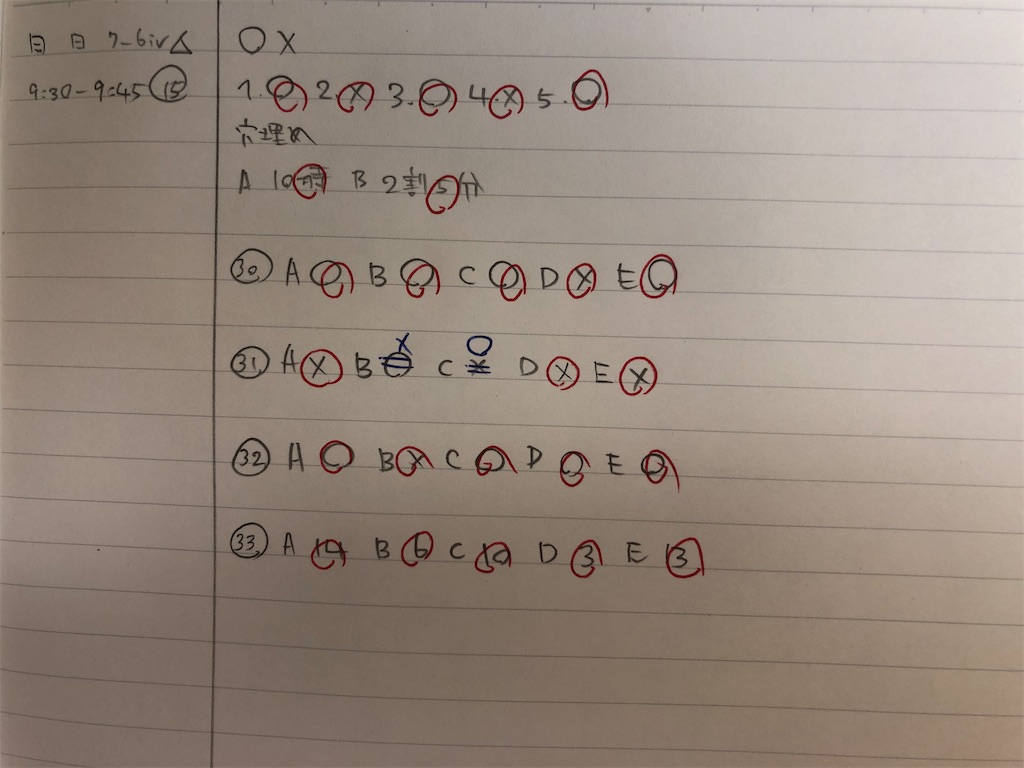 目 日 7-6iv△ ○ ×
9:30-9:45 ⑮ 1.○ 2× 3.○ 4.× 5.○
穴埋め
A 10時 B 2割5分
㉚ A ○ B ○ C ○ D × E ○
㉛ A × B × C ○ D × E ×
㉜ A ○ B × C ○ D ○ E ○
㉝ A 14 B 6 C 10 D 3 E 13